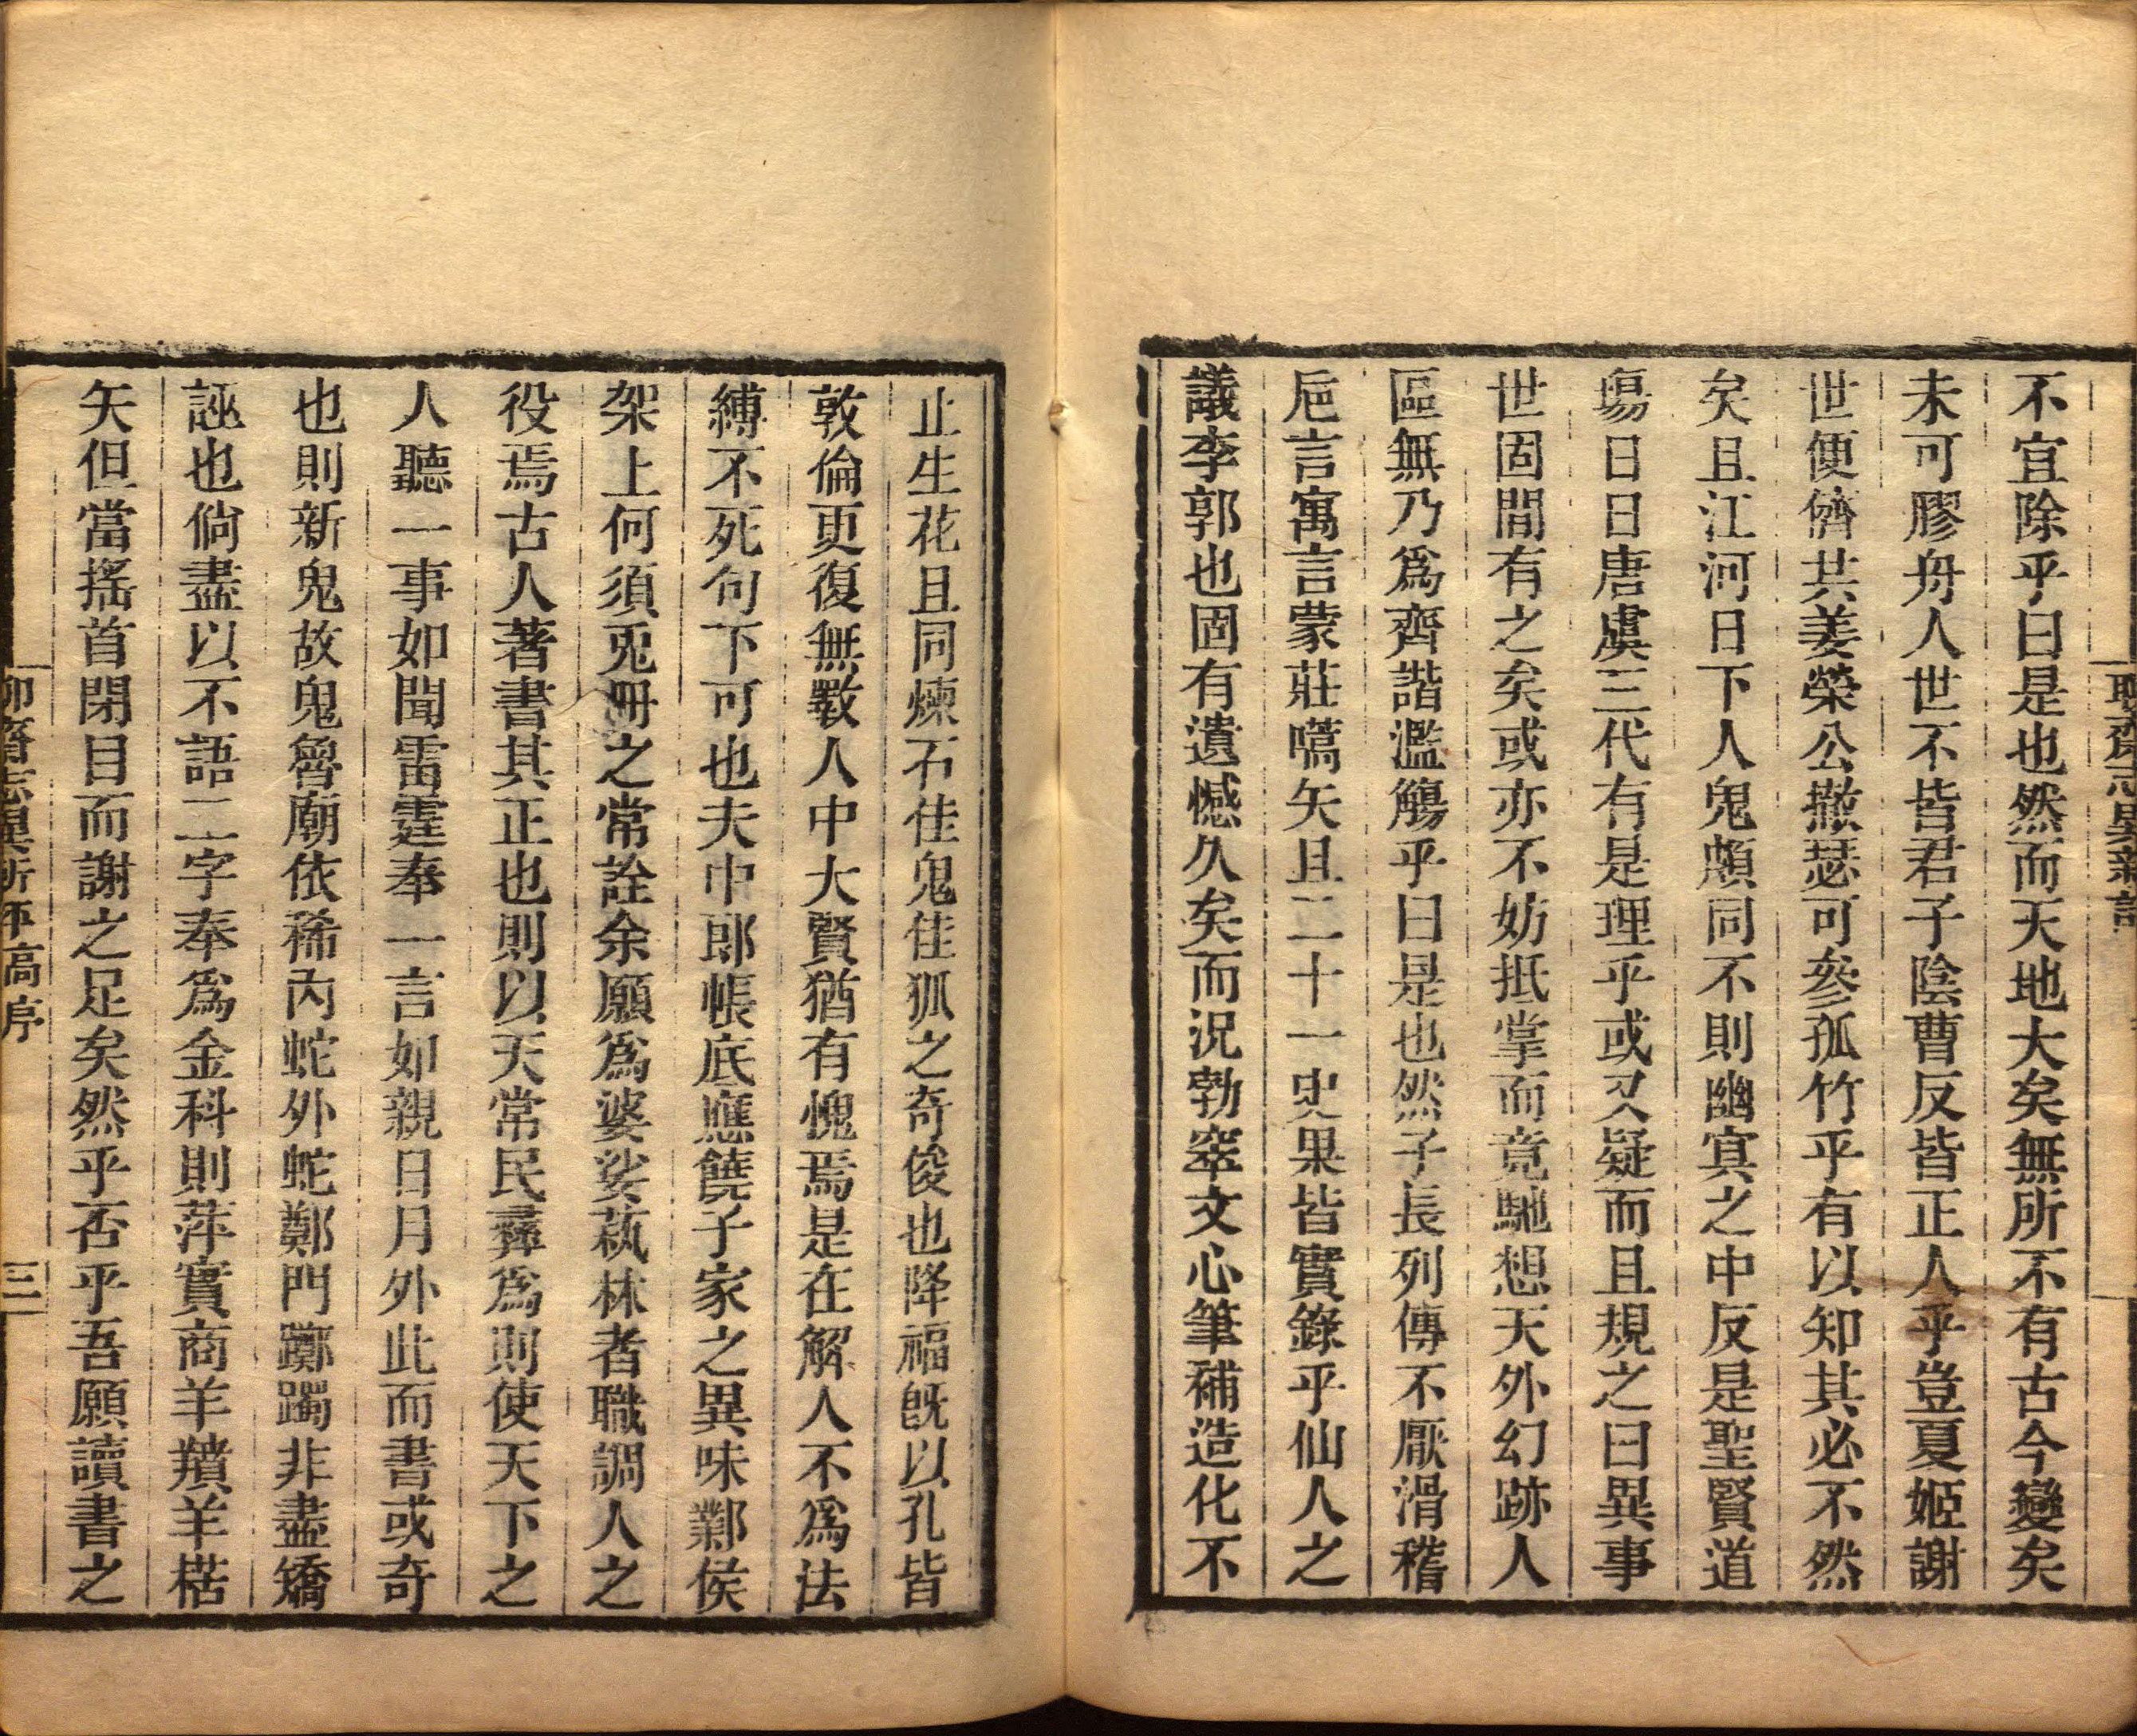 聊齋志異新評
不宜除乎曰是也然而天地大矣無所不有古今變矣
未可膠舟人世不皆君子陰曹反皆正人乎豈夏姬謝
世便儕共姜榮公撤瑟可參孤竹乎有以知其必不然
矣且江河日下人鬼頗同不則幽冥之中反是聖賢道
場日日唐虞三代有是理乎或又疑而且規之曰異事
世固間有之矣或亦不妨抵掌而竟馳想天外幻跡人
區無乃爲齊諧濫觴乎曰是也然子長列傳不厭滑稽
巵言寓言蒙莊嚆矢且二十一史果皆實錄乎仙人之
議李郭也固有遺憾久矣而況勃窣文心筆補造化不
止生花且同煉石佳鬼佳狐之奇俊也降福旣以孔皆
敦倫更復無斁人中大賢猶有愧焉是在解人不爲法
縛不死句下可也夫中郎帳底應饒子家之異味鄴侯
架上何須兎冊之常詮余願爲婆娑蓺林者職調人之
役焉古人著書其正也則以天常民彝爲則使天下之
人聽一事如聞雷霆奉一言如親日月外此而書或奇
也則新鬼故鬼魯廟依稀內蛇外蛇鄭門躑躅非盡矯
誣也倘盡以不語二字奉爲金科則萍實商羊羵羊楛
矢但當搖首閉目而謝之足矣然乎否乎吾願讀書之
聊齋志異新評高序 三